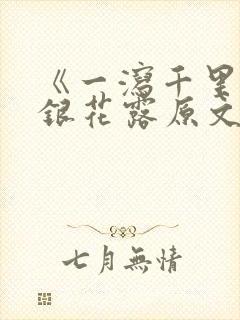 《一瀉千里
銀花露原文
七月無情